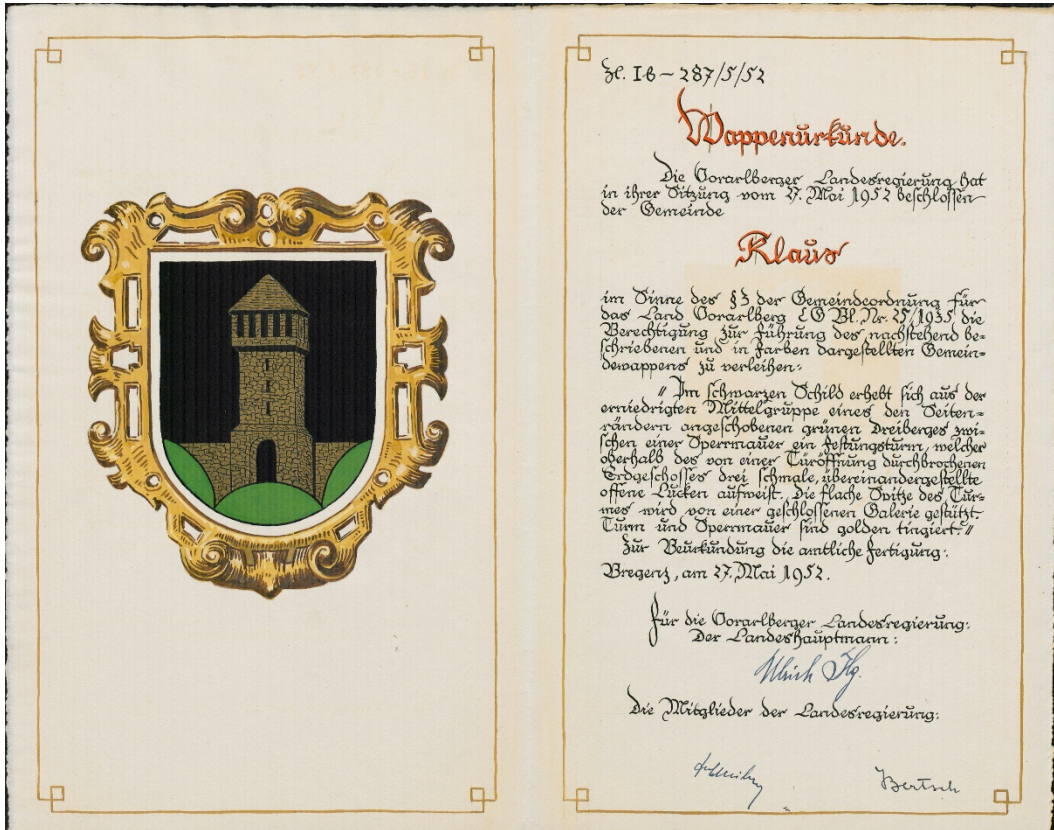 Zl. Ib – 287/5/52
Wappenurkunde.
Die Vorarlberger Landesregierung hat
in ihrer Sitzung vom 27. Mai 1952 beschlossen
der Gemeinde
Klaus
im Sinne des §3 der Gemeindeordnung für
das Land Vorarlberg LG Bl. Nr. 25/1935 die
Berechtigung zur Führung des nachstehend be-
schriebenen und in Farben dargestellten Gemein-
dewappens zu verleihen:
"Im schwarzen Schild erhebt sich aus der
erniedrigten Mittelgruppe eines den Seiten-
rändern angeschobenen grünen Dreiberges zwi-
schen einer Sperrmauer ein Festungsturm, welcher
oberhalb des von einer Türöffnung durchbrochenen
Erdgeschosses drei schmale, übereinandergestellte
offene Lücken aufweist. Die flache Spitze des Tur-
mes wird von einer geschlossenen Galerie gestützt.
Turm und Sperrmauer sind golden tingiert."
Zur Beurkundung die amtliche Fertigung:
Bregenz, am 27. Mai 1952.
Für die Vorarlberger Landesregierung:
Der Landeshauptmann:
Ulrich Ilg.
Die Mitglieder der Landesregierung:
Bertsch